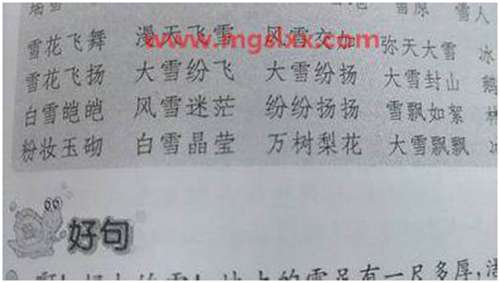 雪花飞舞 漫天飞雪 风雪交加 弥天大雪 冰
www.mgslxx.com
雪花飞扬 大雪纷飞 大雪纷扬 大雪封山 鹅
白雪皑皑 风雪迷茫 纷纷扬扬 雪飘如絮
粉妆玉砌 白雪晶莹 万树梨花 大雪飘飘 冰
好句
的雪足有一尺多厚,洁